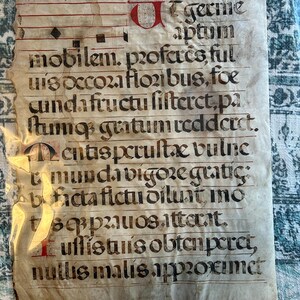 Ut germē
aptum
mobilem. proferēs, ful
uis decora floribus, foe
cunda fructu sisteret, pa
stumqꝫ gratum redderet.
Mentis perustæ vulne
ra munda vigore gratię;
ut facta fletu diluat, mo
tusqꝫ prauos atterat.
Iussis tuis obtenperet,
nullis malis approximet